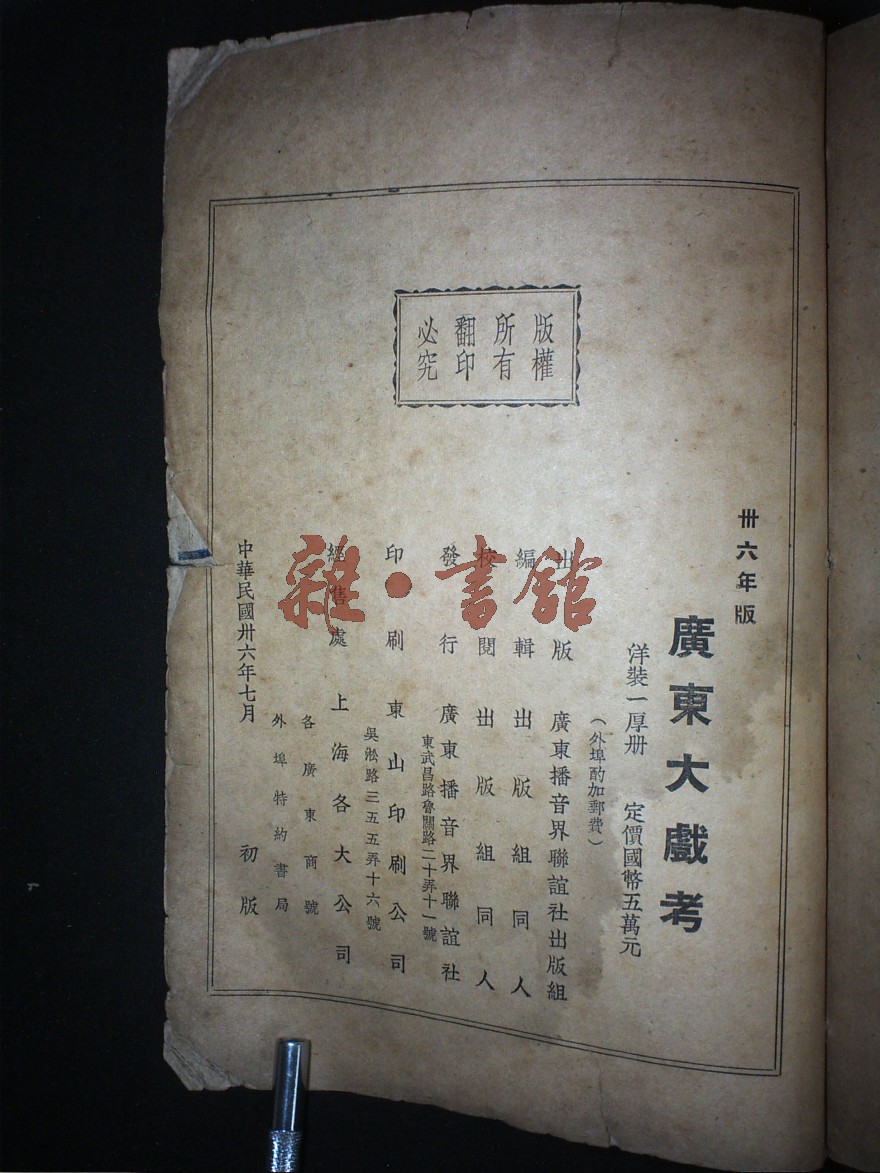 版權
所有
翻印
必究
卅六年版
廣東大戲考
洋裝一厚册 定價國幣五萬元
(外埠酌加郵費)
出版 廣東播音界聯誼社出版組
編輯 出版組同人
校閱 出版組同人
發行 廣東播音界聯誼社
東武昌路魯關路二十弄十一號
印刷 東山印刷公司
吳淞路三五五弄十六號
經售處 上海各大公司
各廣東商號
外埠特約書局
中華民國卅六年七月 初版
雜·書館